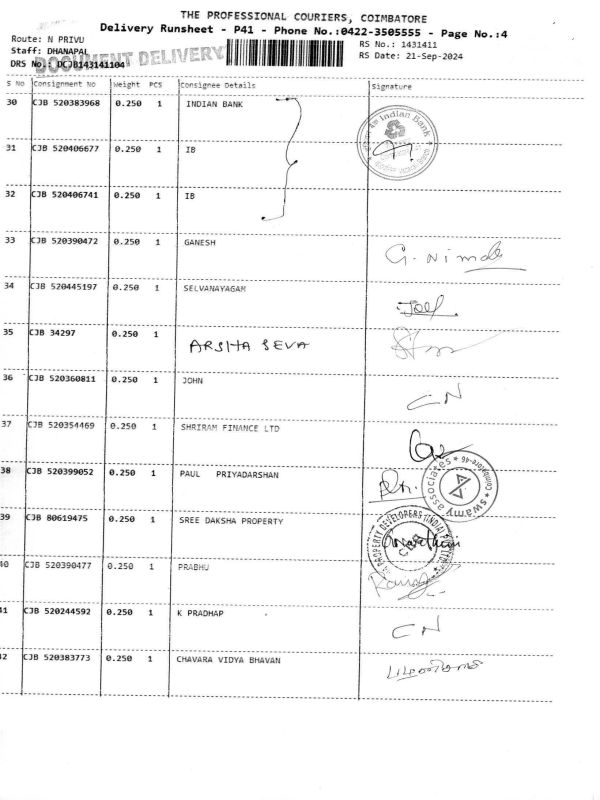 THE PROFESSIONAL COURIERS, COIMBATORE
Delivery Runsheet - P41 - Phone No.:0422-3505555 - Page No.:4
Route: N PRIVU
RS No.: 1431411
Staff: DHANAPAL
DOCUMENT DELIVERY
RS Date: 21-Sep-2024
DRS No.: DCJB143141104
S No Consignment No Weight PCS Consignee Details Signature
30 CJB 520383968 0.250 1 INDIAN BANK
Indian Bank
31 CJB 520406677 0.250 1 IB
32 CJB 520406741 0.250 1 IB
33 CJB 520390472 0.250 1 GANESH G. Nimala
34 CJB 520445197 0.250 1 SELVANAYAGAM Joel
35 CJB 34297 0.250 1 ARSHA SEVA
36 CJB 520360811 0.250 1 JOHN CN
37 CJB 520354469 0.250 1 SHRIRAM FINANCE LTD
38 CJB 520399052 0.250 1 PAUL PRIYADARSHAN
swamy associates * Coimbatore-46 *
39 CJB 80619475 0.250 1 SREE DAKSHA PROPERTY
PROPERTY DEVELOPERS (INDIA)
40 CJB 520390477 0.250 1 PRABHU
41 CJB 520244592 0.250 1 K PRADHAP CN
42 CJB 520383773 0.250 1 CHAVARA VIDYA BHAVAN